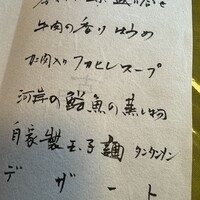 牛肉の香り炒め
カニ肉入りフカヒレスープ
河岸の鮮魚の蒸し物
自家製玉子麺 タンタンメン
デザート